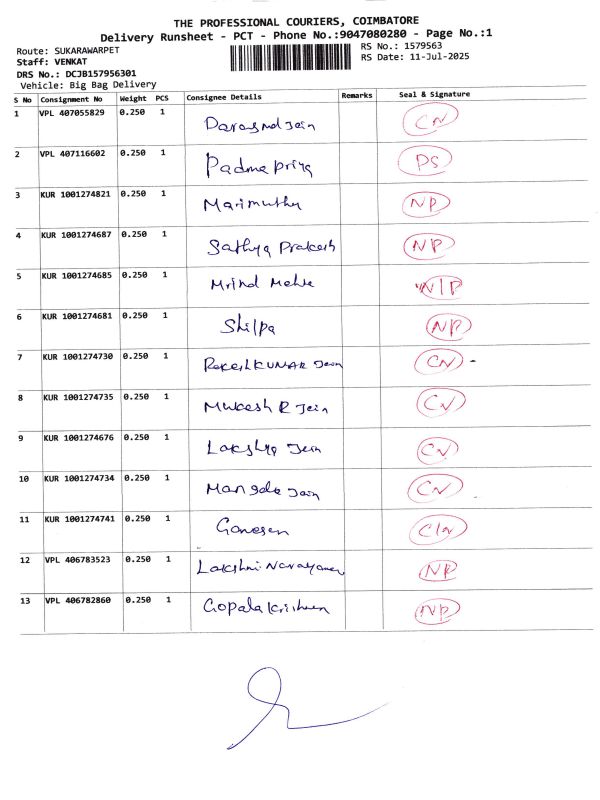 THE PROFESSIONAL COURIERS, COIMBATORE
Delivery Runsheet - PCT - Phone No.:9047080280 - Page No.:1
Route: SUKARAWARPET
RS No.: 1579563
Staff: VENKAT
RS Date: 11-Jul-2025
DRS No.: DCJB157956301
Vehicle: Big Bag Delivery
S No Consignment No Weight PCS Consignee Details Remarks Seal & Signature
1 VPL 407055829 0.250 1 Jain CN
2 VPL 407116602 0.250 1 Padma priya PS
3 KUR 1001274821 0.250 1 Marimuthu NP
4 KUR 1001274687 0.250 1 Sathya Prakash NP
5 KUR 1001274685 0.250 1 NP
6 KUR 1001274681 0.250 1 Shilpa NP
7 KUR 1001274730 0.250 1 RakeshKUMAR Jain CN
8 KUR 1001274735 0.250 1 Mukesh R Jain CN
9 KUR 1001274676 0.250 1 Lakshya Jain CN
10 KUR 1001274734 0.250 1 Jain CN
11 KUR 1001274741 0.250 1 Ganesan
12 VPL 406783523 0.250 1 Lakshmi Narayanan NP
13 VPL 406782860 0.250 1 Gopala Krishnan NP